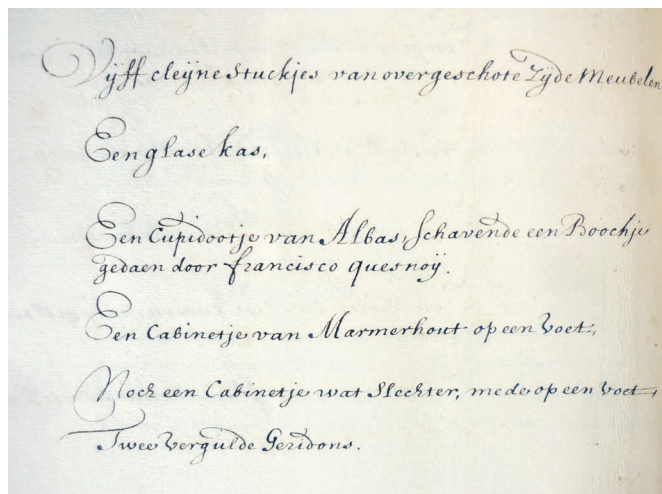 Vijff cleijne stuckjes van overgeschote Zijde Meubelen
Een glase kas,
Een Cupidootje van Albas, schavende een Boochje
gedaen door francisco quesnoij.
Een Cabinetje van Marmerhout op een voet,
Noch een Cabinetje wat slechter, mede op een voet,
Twee vergulde Geridons.